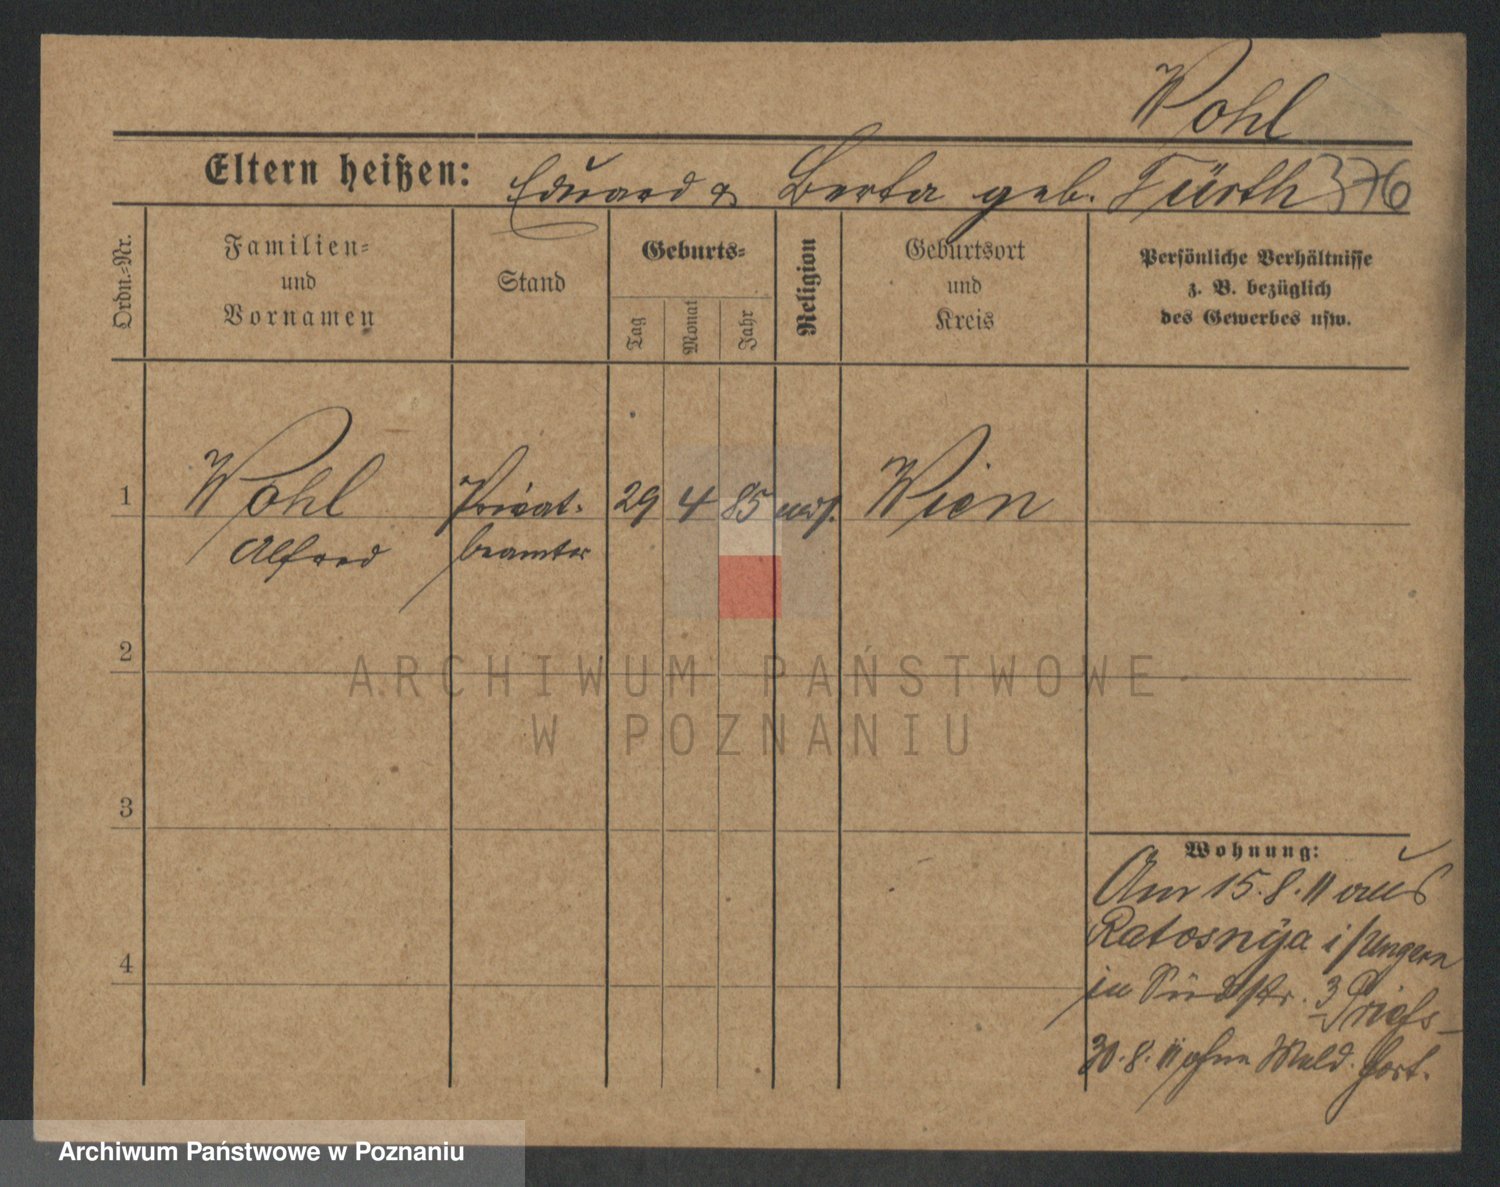 Wohl
Eltern heißen: Eduard & Berta geb. Fürth 376
Ordn.-Nr.
Familien-
und
Vornamen
Stand
Geburts-
Tag
Monat
Jahr
Religion
Geburtsort
und
Kreis
Persönliche Verhältnisse
z. B. bezüglich
des Gewerbes usw.
1 Wohl Privat- 29 4 85 mos. Wien
Alfred beamter
2
ARCHIWUM PAŃSTWOWE
W POZNANIU
3
4
Wohnung:
Am 15.8.11 aus
Ratosnya i/Ungarn
in Südstr. 3
30.8.11 ohne Meld. fort.
Archiwum Państwowe w Poznaniu